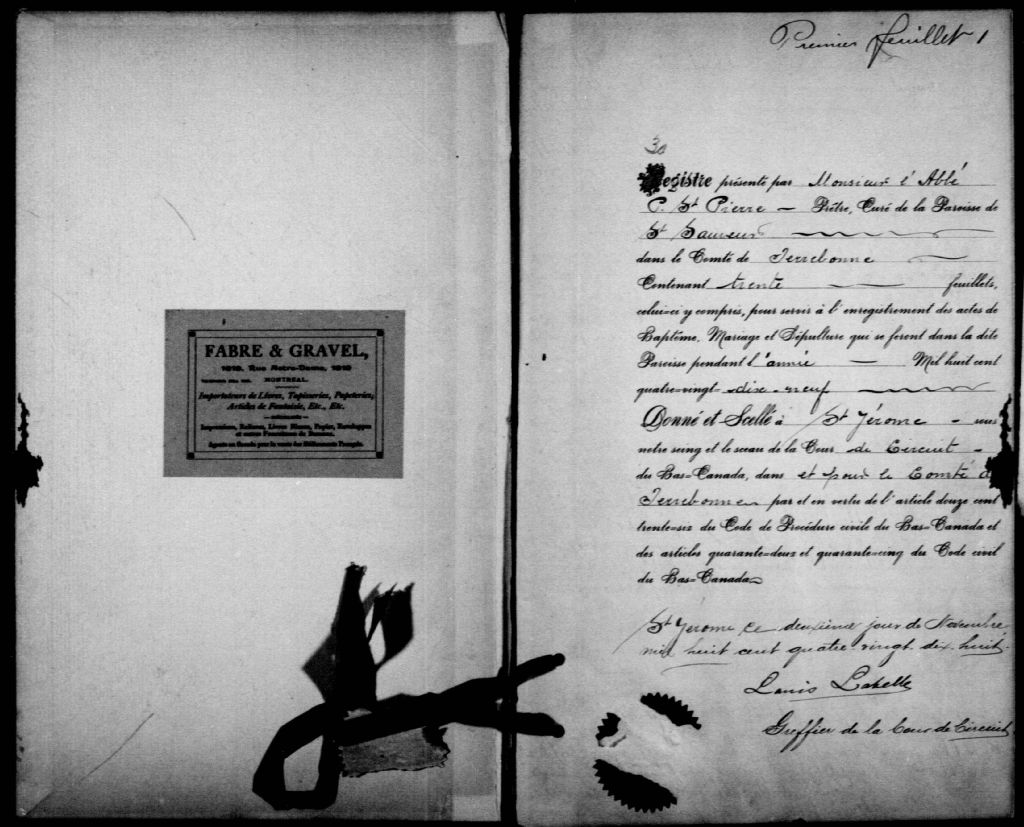 FABRE & GRAVEL,
1619, Rue Notre-Dame, 1619
MONTREAL.
Importateurs de Livres, Tapisseries, Papeteries,
Articles de Fantaisie, Etc., Etc.
Impressions, Reliures, Livres Blancs, Papier, Enveloppes
et autres Fournitures de Bureau.
Agents au Canada pour la vente des
Premier feuillet 1
30
Registre présenté par Monsieur l'Abbé
P. St Pierre — Prêtre, Curé de la Paroisse de
St Sauveur
dans le Comté de Terrebonne
Contenant trente feuillets,
celui=ci y compris, pour servir à l'enregistrement des actes de
Baptême, Mariage et Sépulture qui se feront dans la dite
Paroisse pendant l'année — Mil huit cent
quatre=vingt= dix-neuf
Donné et Scellé à St Jérome - sous
notre seing et le sceau de la Cour de Circuit -
du Bas=Canada, dans et pour le Comté d
Terrebonne par et en vertu de l'article douze cent
trente=six du Code de Procédure civile du Bas=Canada et
des articles quarante=deux et quarante=cinq du Code civil
du Bas=Canada
St Jerome ce deuxième jour de Novembre
mil huit cent quatre vingt dix-huit.
Louis Labelle
Greffier de la Cour de Circuit